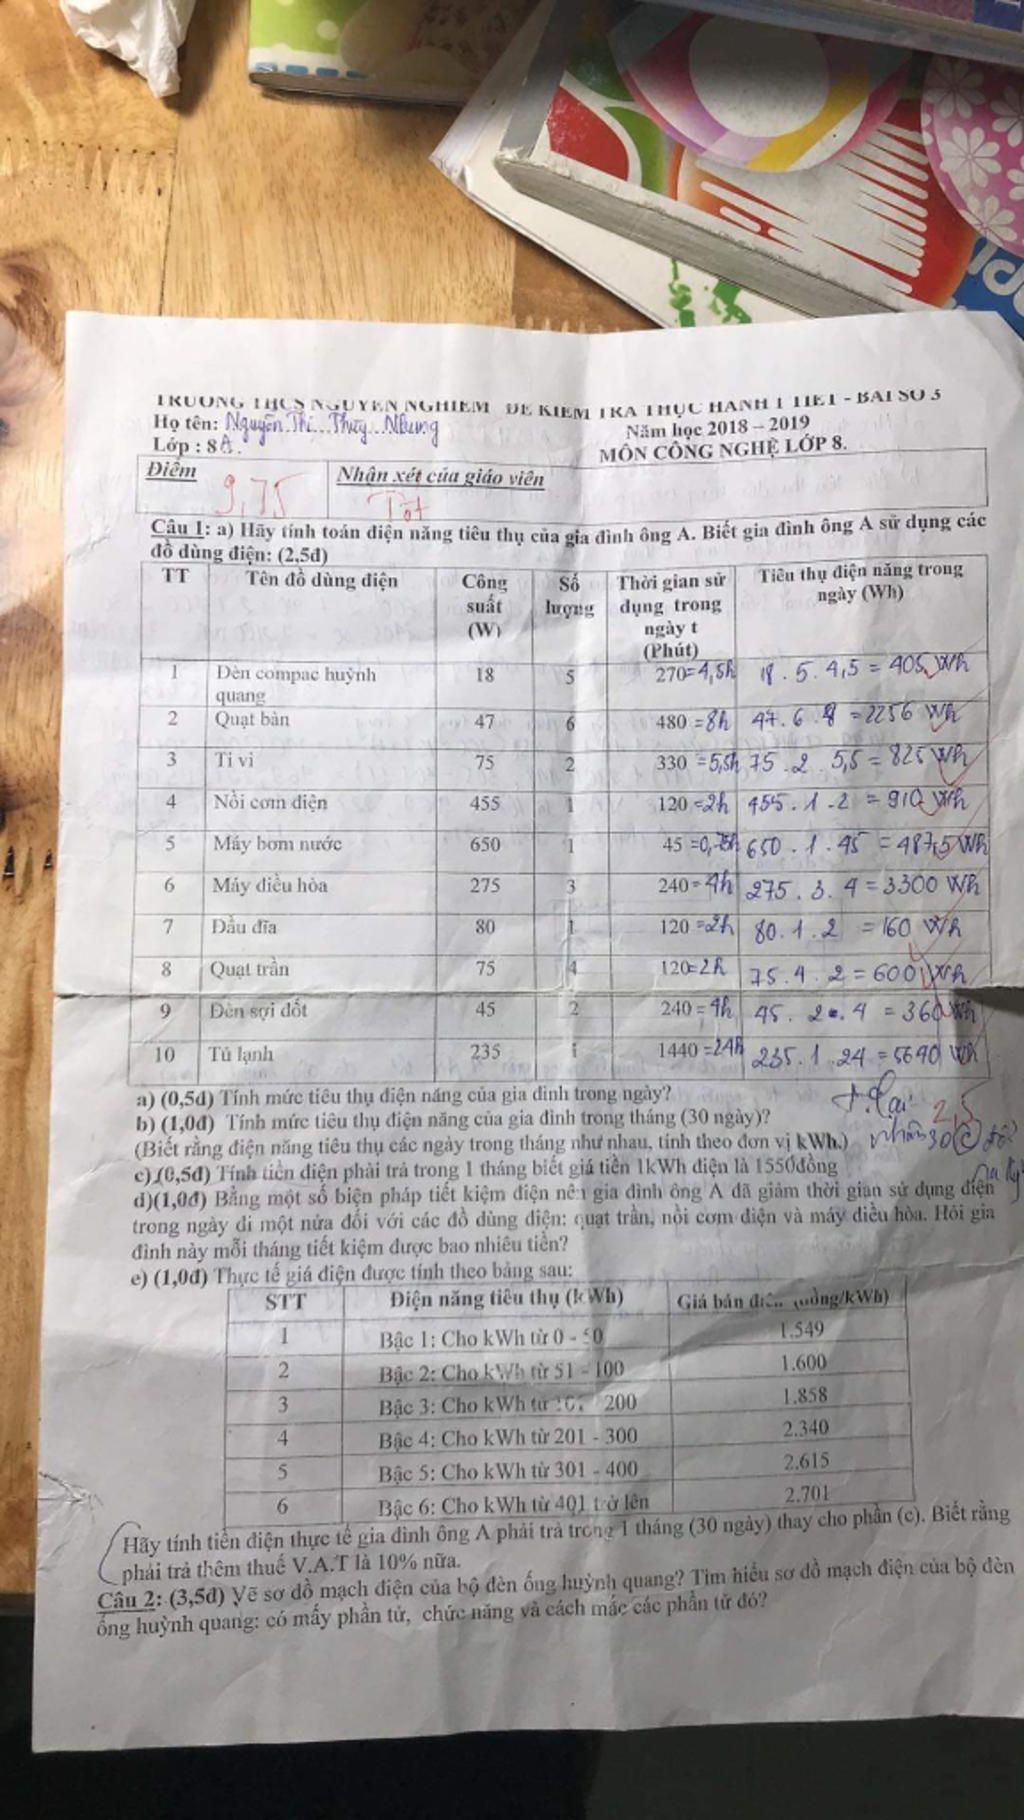 TRƯỜNG THCS NGUYỄN NGHIÊM ĐỀ KIỂM TRA THỰC HÀNH 1 TIẾT - BÀI SỐ 3
Họ tên: Nguyễn Thị Thùy Nhung
Năm học 2018 – 2019
Lớp : 8A.
MÔN CÔNG NGHỆ LỚP 8.
Điểm Nhận xét của giáo viên
9,75 Tốt
Câu 1: a) Hãy tính toán điện năng tiêu thụ của gia đình ông A. Biết gia đình ông A sử dụng các
đồ dùng điện: (2,5đ)
TT Tên đồ dùng điện Công Số Thời gian sử Tiêu thụ điện năng trong
suất lượng dụng trong ngày (Wh)
(W) ngày t
(Phút)
1 Đèn compac huỳnh 18 5 270=4,5h 18 . 5 . 4,5 = 405 Wh
quang
2 Quạt bàn 47 6 480 =8h 47. 6 . 8 =2256 Wh
3 Ti vi 75 2 330 =5,5h 75 . 2 . 5,5 = 825 Wh
4 Nồi cơm điện 455 1 120 =2h 455 . 1 . 2 = 910 Wh
5 Máy bơm nước 650 1 45 =0,75h 650 . 1 . 45 = 487,5 Wh
6 Máy điều hòa 275 3 240= 4h 275 . 3 . 4 = 3300 Wh
7 Đầu đĩa 80 1 120 =2h 80. 1 . 2 = 160 Wh
8 Quạt trần 75 4 120=2h 75 . 4 . 2 = 600 Wh
9 Đèn sợi đốt 45 2 240 = 4h 45 . 2 . 4 = 360 Wh
10 Tủ lạnh 235 1 1440 =24h 235. 1 . 24 = 5640 Wh
a) (0,5đ) Tính mức tiêu thụ điện năng của gia đình trong ngày?
2,5
b) (1,0đ) Tính mức tiêu thụ điện năng của gia đình trong tháng (30 ngày)?
(Biết rằng điện năng tiêu thụ các ngày trong tháng như nhau, tính theo đơn vị kWh.) nhân 30
c) (0,5đ) Tính tiền điện phải trả trong 1 tháng biết giá tiền 1kWh điện là 1550đồng
d)(1,0đ) Bằng một số biện pháp tiết kiệm điện nên gia đình ông A đã giảm thời gian sử dụng điện
trong ngày đi một nửa đối với các đồ dùng điện: quạt trần, nồi cơm điện và máy điều hòa. Hỏi gia
đình này mỗi tháng tiết kiệm được bao nhiêu tiền?
e) (1,0đ) Thực tế giá điện được tính theo bảng sau:
STT Điện năng tiêu thụ (kWh) Giá bán điện (đồng/kWh)
1 Bậc 1: Cho kWh từ 0 - 50 1.549
2 Bậc 2: Cho kWh từ 51 - 100 1.600
3 Bậc 3: Cho kWh từ 101 - 200 1.858
4 Bậc 4: Cho kWh từ 201 - 300 2.340
5 Bậc 5: Cho kWh từ 301 - 400 2.615
6 Bậc 6: Cho kWh từ 401 trở lên 2.701
Hãy tính tiền điện thực tế gia đình ông A phải trả trong 1 tháng (30 ngày) thay cho phần (c). Biết rằng
phải trả thêm thuế V.A.T là 10% nữa.
Câu 2: (3,5đ) Vẽ sơ đồ mạch điện của bộ đèn ống huỳnh quang? Tìm hiểu sơ đồ mạch điện của bộ đèn
ống huỳnh quang: có mấy phần tử, chức năng và cách mắc các phần tử đó?